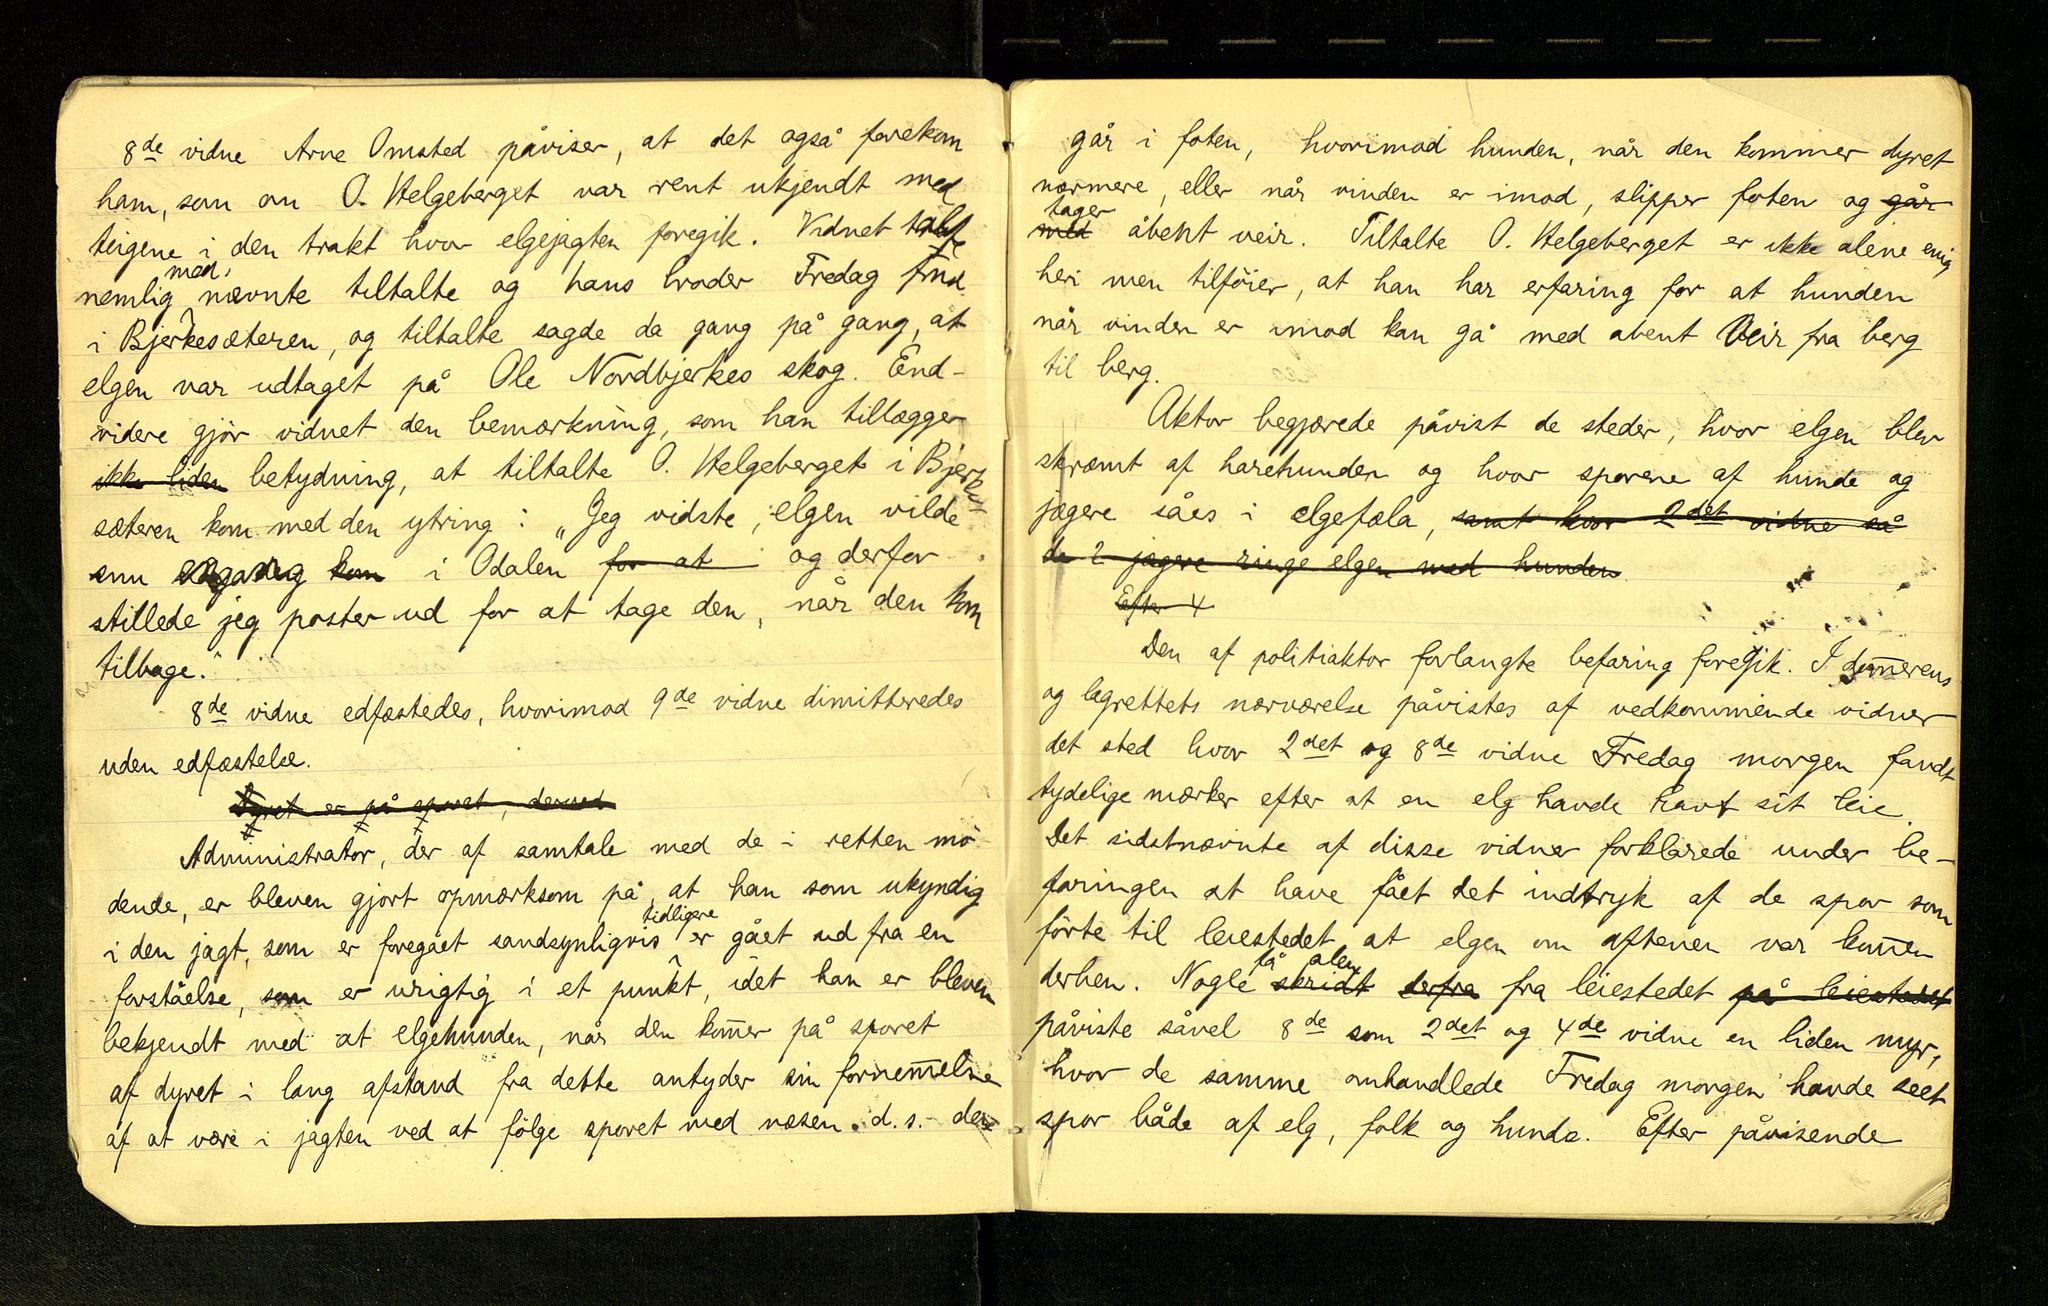 8de vidne Arne Omsted påviser, at det også forekom
ham, som om O. Helgeberget var rent ukjendt med
teigene i den trakt hvor elgejagten foregik. Vidnet talte
med
nemlig nævnte tiltalte og hans broder Fredag
i Bjerkesæteren, og tiltalte sagde da gang på gang, at
elgen var udtaget på Ole Nordbjerkes skog. End-
videre gjør vidnet den bemærkning, som han tillægger
ikke liden betydning, at tiltalte O. Helgeberget i Bjerke
sæteren kom med den ytring: „Jeg vidste, elgen vilde
snu engang kom i Odalen for at og derfor
stillede jeg poster ud for at tage den, når den kom
tilbage."
8de vidne edfæstedes, hvorimod 9de vidne dimitteredes
uden edfæstelse.
Dyret er på sporet, dermed
Administrator, der af samtale med de i retten mø-
dende, er bleven gjort opmærksom på, at han som ukyndig
tidligere
i den jagt, som er foregået sandsynligvis er gået ud fra en
forståelse, som er urigtig i et punkt, idet han er bleven
bekjendt med at elgehunden, når den kom̅er på sporet
af dyret i lang afstand fra dette antyder sin fornem̅else
af at være i jagten ved at følge sporet med næsen. d.s. den
går i foten, hvorimod hunden, når den kommer dyret
nærmere, eller når vinden er imod, slipper foten og går
tager
med åbent veir. Tiltalte O. Helgeberget er ikke alene enig
heri men tilføier, at han har erfaring for at hunden
når vinden er imod kan gå med abent Veir fra berg
til berg.
Aktor begjærede påvist de steder, hvor elgen blev
skræmt af harehunden og hvor sporene af hunde og
jægere såes i elgefæla, samt hvor 2det vidne så
de 2 jægere ringe elgen med hunden
Efter 4
Den af politiaktor forlangte befaring foregik. I dom̅erens
og lagrettets nærværelse påvistes af vedkommende vidner
det sted hvor 2det og 8de vidne Fredag morgen fandt
tydelige mærker efter at en elg havde havt sit leie.
Det sidstnævnte af disse vidner forklarede under be-
faringen at have fået det indtryk af de spor som
førte til leiestedet at elgen om aftenen var kom̅en
få alen
derhen. Nogle skridt derfra fra leiestedet på leiestedet
påviste såvel 8de som 2det og 4de vidne en liden myr,
hvor de samme omhandlede Fredag morgen havde seet
spor både af elg, folk og hunde. Efter påvisende